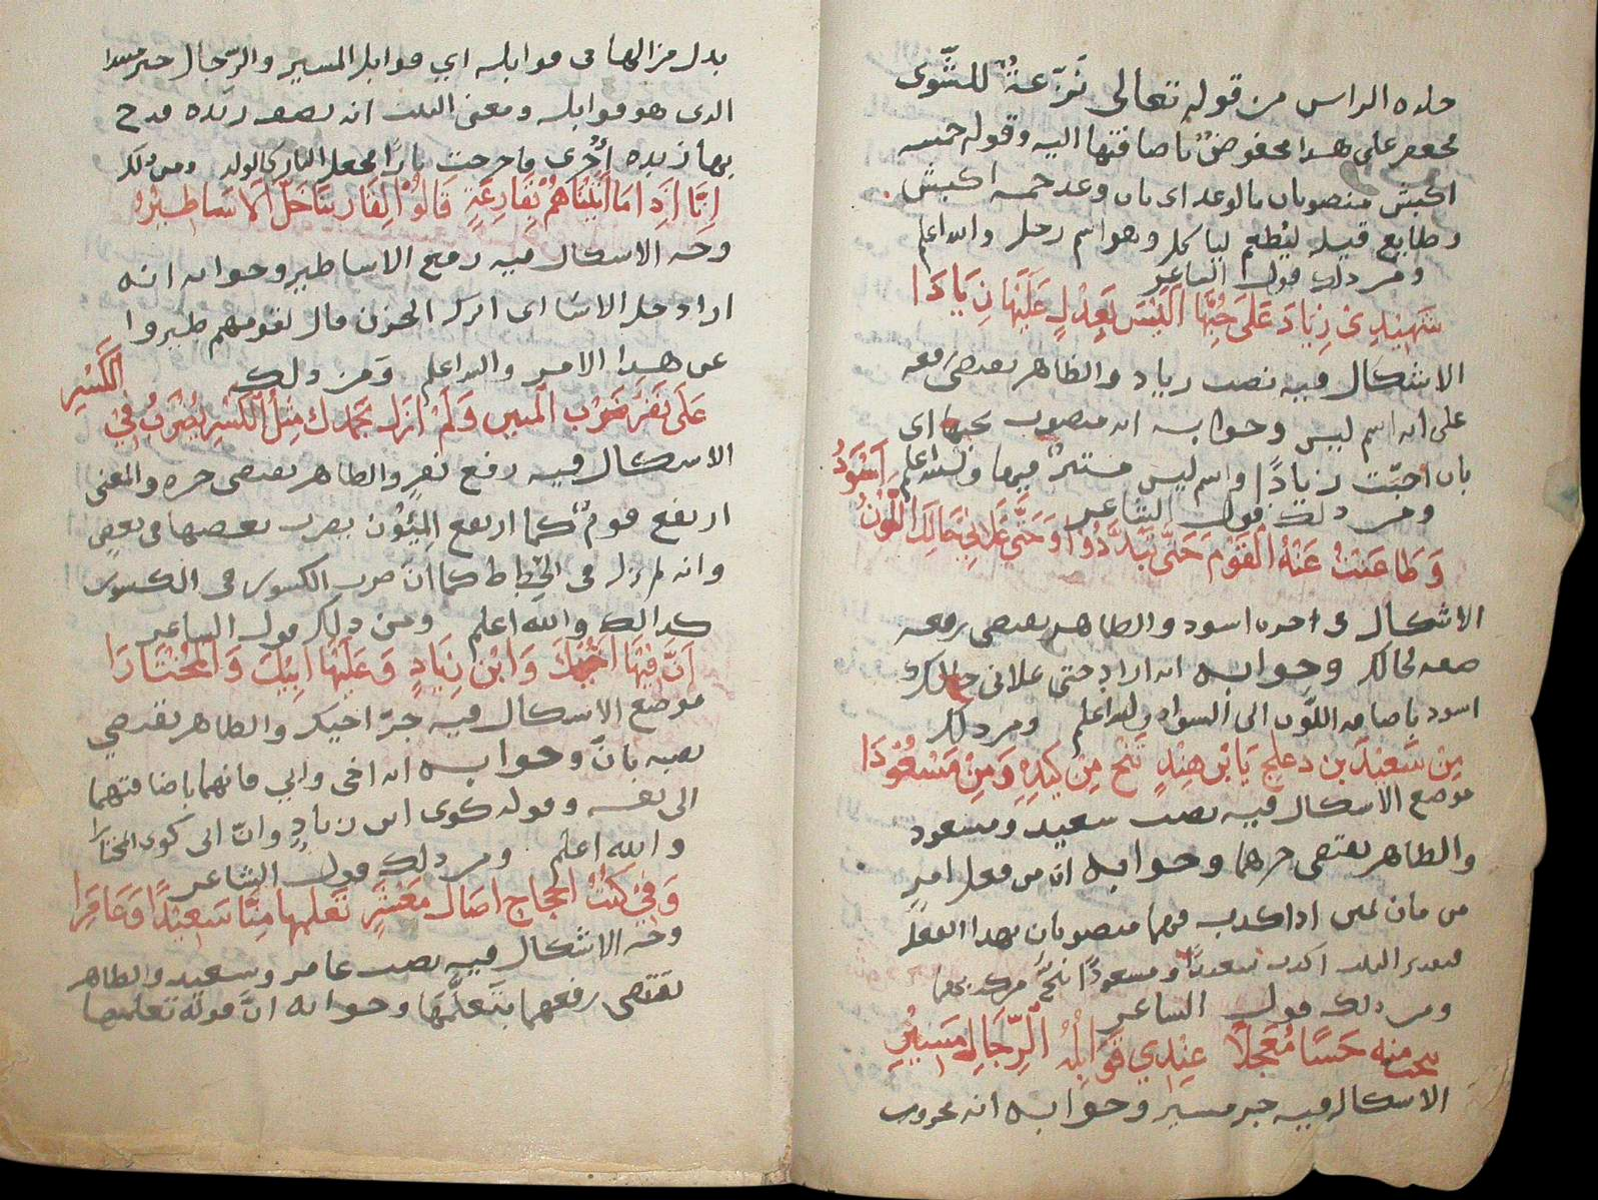 جلده الراس من قوله تعالى نَزّاعةً للشّوى
على هذا مخفوضٌ باضافتها اليه وقوله خمسه
اكبش منصوبان بالوعد اى بان وعد خمسه اكبش
وطابع قيل ليُطعم لياكل وهو اسم رجل والله اعلم
ومن ذلك قول الشاعر
شَهِيْدِيْ زِيَادَ عَلَى حُبِّهَا اَلَيْسَ بِعِدْلٍ عَلَيْهَا زِيَادَا
الاشكال فيه نصب زياد والظاهر يقتضى رفعه
على انه اسم ليس وجوابه انه منصوب بحبها اى
بان احبّت زيادًا واسم ليس مستترٌ فيها والله اعلم
ومن ذلك قول الشاعر اَسْوَدُ
وَطَاعَنْتُ عَنْهُ القَوْمَ حَتَّى تَبَدَّدُوا وَحَتَّى عَلَانِي حَالِكُ اللَّوْنُ
الاشكال فى اخره اسود والظاهر يقتضى رفعه
صفه لحالك وجوابه انه اراد حتى علانى حالك
اسود باضافه اللّون الى السواد والله اعلم ومن ذلك
مِنْ سَعِيْدَ بن دعلج يَا بْن هِنْدٍ تَنْحُ مِنْ كَيْدِهِ وَمِنْ مَسْعُوْدَا
موضع الاشكال فيه نصب سعيد ومسعود
والظاهر يقتضى جرهما وجوابه ان من فعل امرٍ
من مان يمين اذا كذب فهما منصوبان بهذا الفعل
البيت اكذب سعيدًا ومسعودًا تنجُ من كيدهما
ومن ذلك قول الشاعر
منه حَسَنًا مُعَجّلاً عِنْدِي قَوَابِلُهُ الرِّجَالِ مَسِيْرِ
الاشكال فيه جر مسير وجوابه انه مجرور
بدل من الها فى قوابله اي قوابل المسير والرّجال
الذى هو قوابله ومعنى البيت انه زنده قدح
بها زنده اُخْرى فاخرجت نارًا فجعل النار كالولد ومن ذلك
اِنَّا اِذَا مَا اَتَيْنَاهُمْ بِقَارِعَةٍ قَالُوْا لِقَارِعِنَا خَلِّ الاَسَاطِيْرُ
وجه الاشكال فيه رفع الاساطير وجوابه انه
اراد خل الاسَا اى اترك الحزن قال لقومهم طيروا
عن هذا الامر والله اعلم وَمن ذلك
عَلَى نَفَرٍ ضَرْب المئين وَلَمْ ازَل بحمدك مِثْلُ الكَسْرِ يُضْرَبُ فِيْ الكَسْرِ
الاشكال فيه رفع نفر والظاهر يقتضى جره والمعنى
ارتفع قومٌ كما ارتفع المِئُوْن بضرب بعضها فى بعض
وانه لم يزل فى انحطاط كما ان ضرب الكسور فى الكسور
كذلك والله اعلم ومن ذلك قول الشاعر
اَنَّ فِيْهَا اَخِيْكَ وَابْن زِيَادٍ وَعَلَيْهَا اَبِيْكَ وَالمُخْتَارَا
موضع الاشكال فيه جرّ اخيك والظاهر يقتضي
نصبه بانّ وجوابه انه اخى وابي فانهما باضافتهما
الى نفسه وقوله كوى ابن زيادٍ وانّ ابى كوى المختارا
والله اعلم ومن ذلك قول الشاعر
وَفِيْ كُتُبِ الحجاج امثال مَعْشَرٍ تَعَلمها مِنَّا سَعِيْدًا وَعَامِرَا
وجه الاشكال فيه نصب عامر وسعيد والظاهر
يَقتضى رفعهما بِتَعلَّمها وجوابه انّ قوله تعلمها